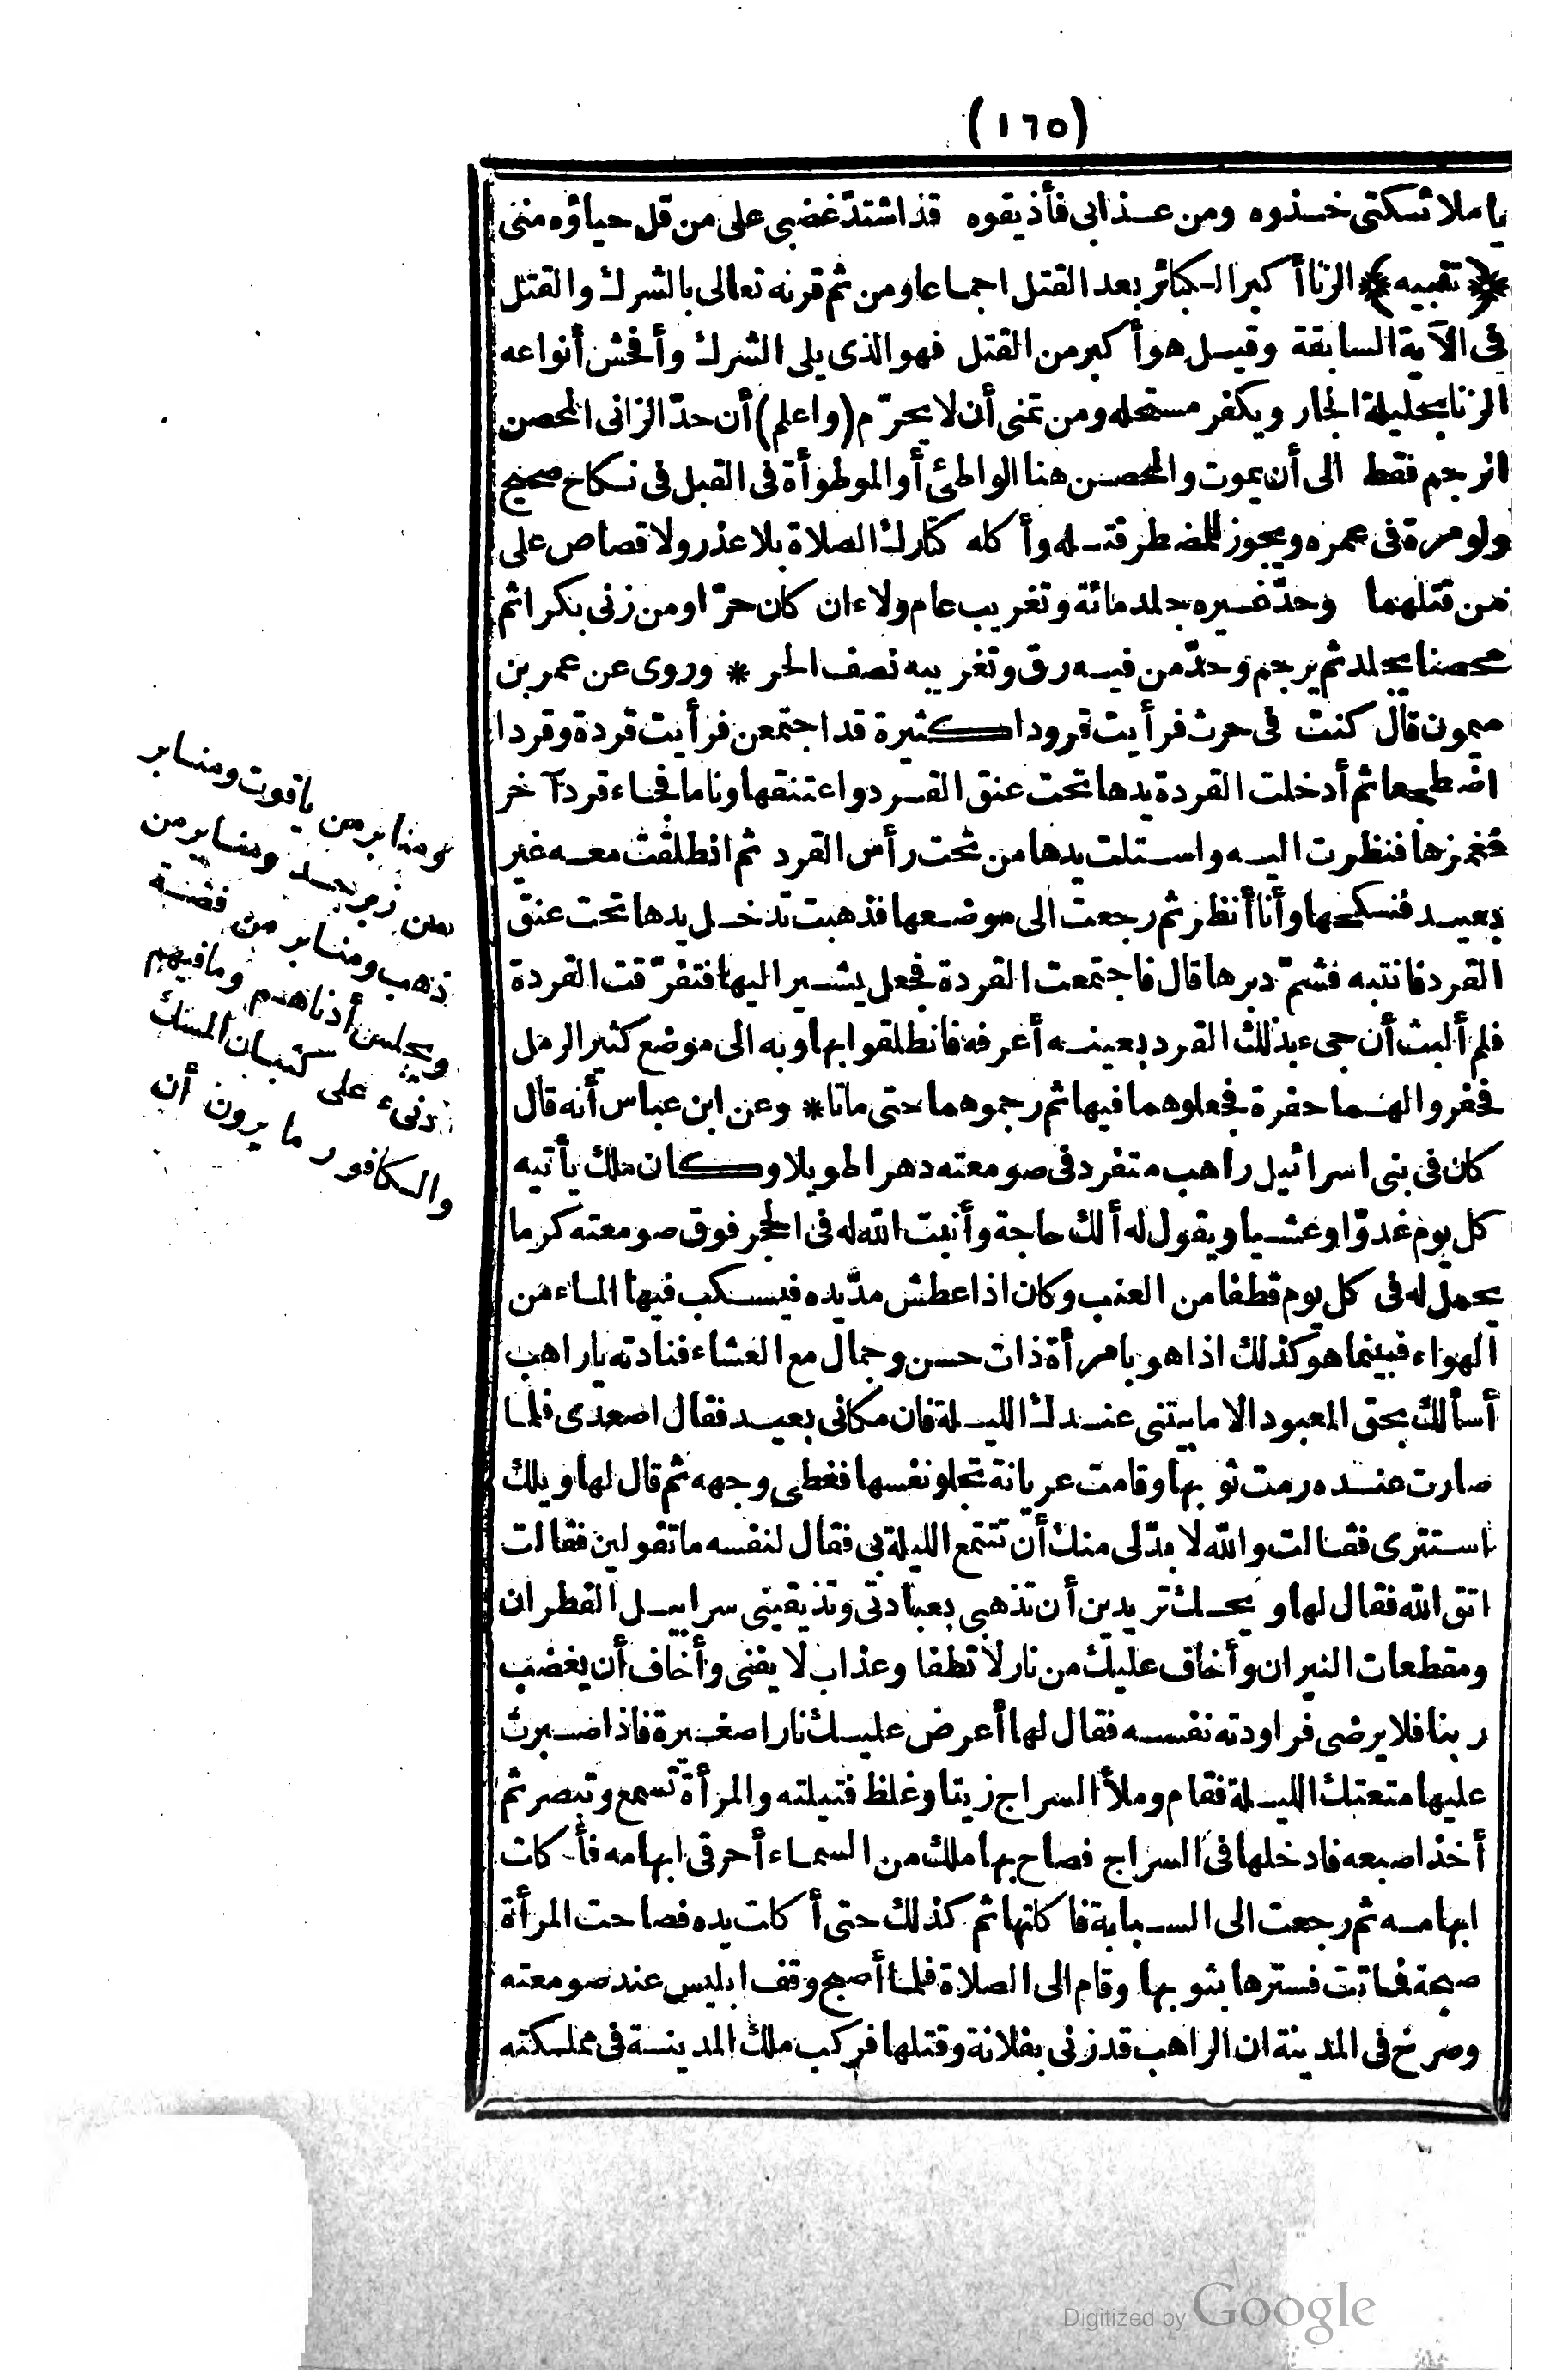 (١٦٥)
يا ملائكتى خذوه ومن عذابى فأذيقوه قد اشتدّ غضبى على من قل حياؤه منى
﴿تنبيه﴾ الزنا أكبر الكبائر بعد القتل اجماعا ومن ثم قرنه تعالى بالشرك والقتل
فى الآية السابقة وقيل هو أكبر من القتل فهو الذى يلى الشرك وأفحش أنواعه
الزنا بحليلة الجار ويكفر مستحله ومن تمنى أن لا يحرّم (واعلم) أن حدّ الزانى المحصن
الرجم فقط الى أن يموت والمحصن هنا الواطئ أو الموطوأة فى القبل فى نكاح صحيح
ولو مرة فى عمره ويجوز للمضطر قتله وأكله كتارك الصلاة بلا عذر ولا قصاص على
من قتلهما وحدّ غيره جلد مائة وتغريب عام ولاء ان كان حرّا ومن زنى بكرا ثم
محصنا يجلد ثم يرجم وحدّ من فيه رق وتغريبه نصف الحر * وروى عن عمر بن
ميمون قال كنت فى حرث فرأيت قرودا كثيرة قد اجتمعن فرأيت قردة وقردا
اضطجعا ثم أدخلت القردة يدها تحت عنق القرد واعتنقها وناما فجاء قرد آخر
فغمزها فنظرت اليه واستلت يدها من تحت رأس القرد ثم انطلقت معه غير
بعيد فنكحها وأنا أنظر ثم رجعت الى موضعها فذهبت تدخل يدها تحت عنق
القرد فانتبه فشمّ دبرها قال فاجتمعت القردة فجعل يشير اليها فتفرّقت القردة
فلم ألبث أن جىء بذلك القرد بعينه أعرفه فانطلقوا بها وبه الى موضع كثير الرمل
فحفروا لهما حفرة فجعلوهما فيها ثم رجموهما حتى ماتا * وعن ابن عباس أنه قال
كان فى بنى اسرائيل راهب متفرد فى صومعته دهرا طويلا وكان ملك يأتيه
كل يوم غدوّا وعشيا ويقول له ألك حاجة وأنبت الله له فى الحجر فوق صومعته كرما
يحمل له فى كل يوم قطفا من العنب وكان اذا عطش مدّ يده فيسكب فيها الماء من
الهواء فبينما هو كذلك اذا هو بامرأة ذات حسن وجمال مع العشاء فنادته يا راهب
أسألك بحق المعبود الا ما بيتنى عندك الليلة فان مكانى بعيد فقال اصعدى فلما
صارت عنده رمت ثوبها وقامت عريانة تجلو نفسها فغطى وجهه ثم قال لها ويلك
استترى فقالت والله لا بدّ لى منك أن تتمتع الليلة بى فقال لنفسه ما تقولين فقالت
اتق الله فقال لها ويحك تريدين أن تذهبى بعبادتى وتذيقينى سرابيل القطران
ومقطعات النيران وأخاف عليك من نار لا تطفا وعذاب لا يفنى وأخاف أن يغضب
ربنا فلا يرضى فراودته نفسه فقال لها أعرض عليك نارا صغيرة فاذا صبرت
عليها متعتك الليلة فقام وملأ السراج زيتا وغلظ فتيلته والمرأة تسمع وتبصر ثم
أخذ اصبعه فادخلها فى السراج فصاح بها ملك من السماء أحرقى ابهامه فأكلت
ابهامه ثم رجعت الى السبابة فاكلتها ثم كذلك حتى أكلت يده فصاحت المرأة
صيحة فماتت فسترها بثوبها وقام الى الصلاة فلما أصبح وقف ابليس عند صومعته
وصرخ فى المدينة ان الراهب قد زنى بفلانة وقتلها فركب ملك المدينة فى مملكته
ومنابر من ياقوت ومنابر
من زبرجد ومنابر من
ذهب ومنابر من فضة
ويجلس أدناهم وما فيهم
دنىء على كثبان المسك
والكافور ما يرون أن
Digitized by Google